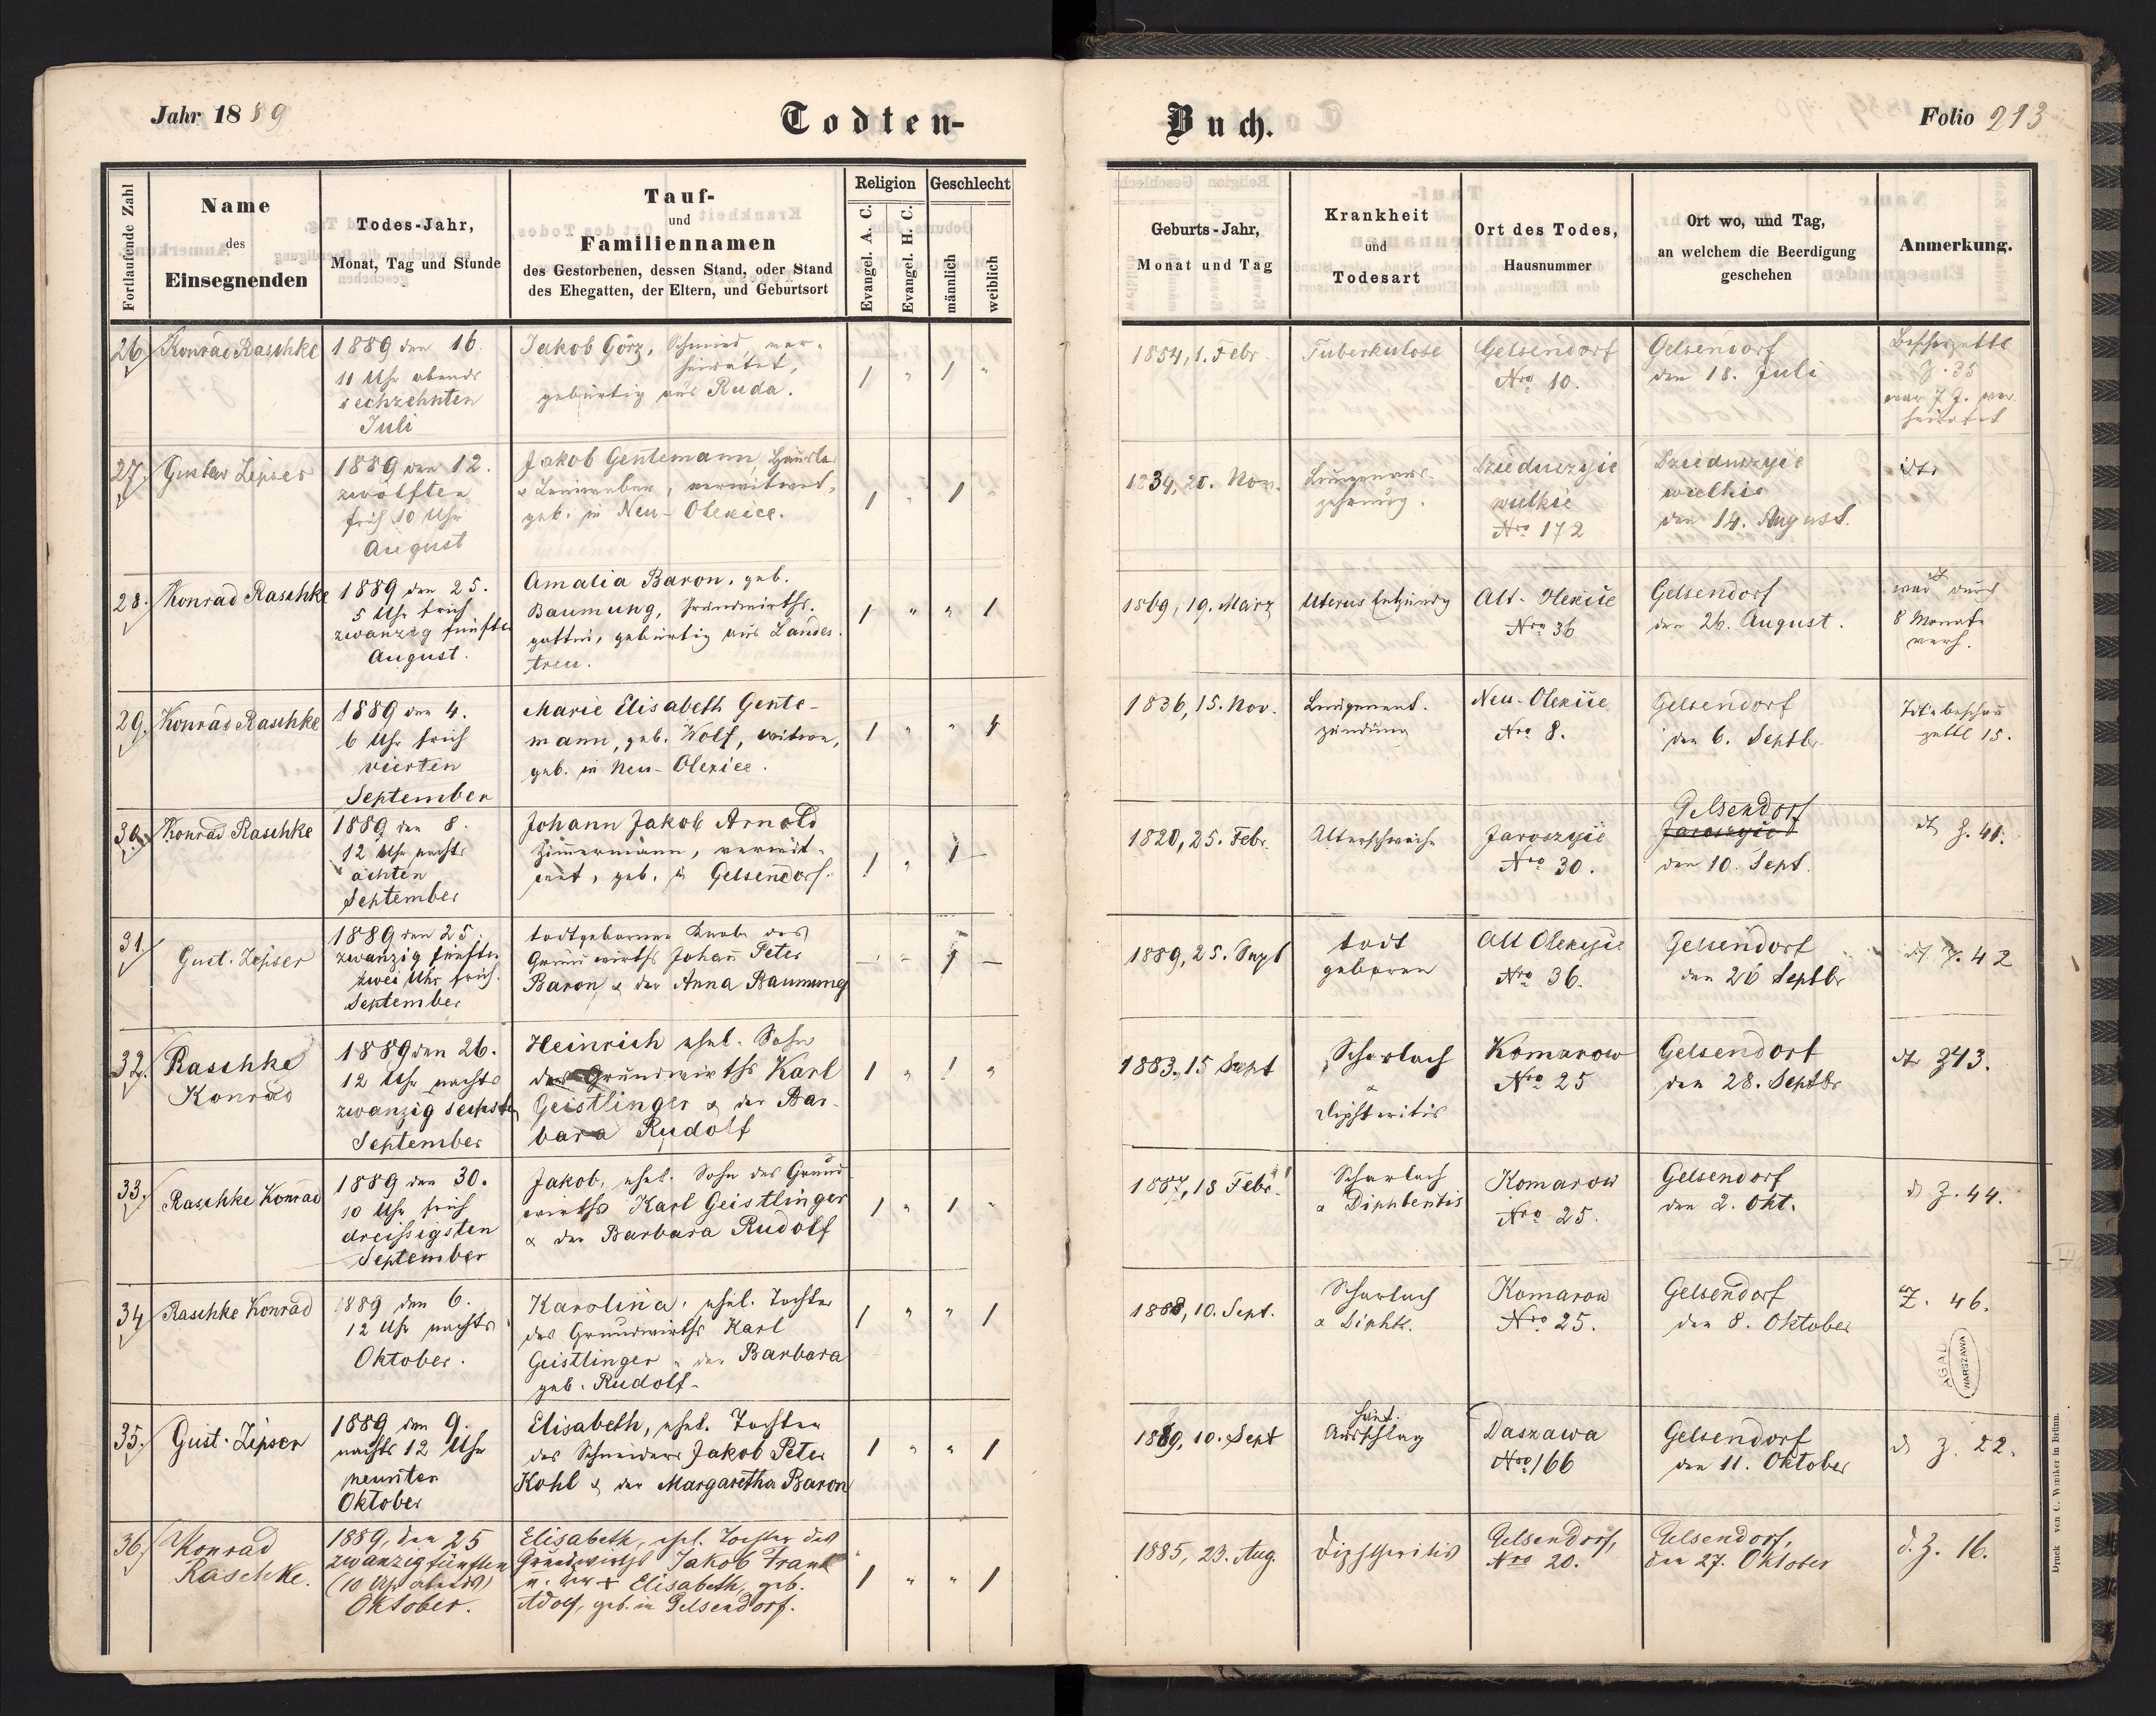 Jahr 1889
Todten-
Buch.
Folio 213
Fortlaufende Zahl
Name
des
Einsegnenden
Todes-Jahr,
Monat, Tag und Stunde
Tauf-
und
Familiennamen
des Gestorbenen, dessen Stand, oder Stand
des Ehegatten, der Eltern, und Geburtsort
Religion
Evangel. A. C.
Evangel. H. C.
Geschlecht
männlich
weiblich
Geburts-Jahr,
Monat und Tag
Krankheit
und
Todesart
Ort des Todes,
Hausnummer
Ort wo, und Tag,
an welchem die Beerdigung
geschehen
Anmerkung.
26
Konrad Raschke
1889 den 16.
11 Uhr abends
sechzehnten
Juli
Jakob Görz, Schmied, ver-
heiratet,
gebürtig aus Ruda.
1 " 1 "
1854, 1. Febr.
Tuberkulose
Gelsendorf
Nro 10.
Gelsendorf
den 18. Juli
Beschauzettl
Z. 35
war 7 J. ver-
heiratet
27.
Gustav Zipser
1889 den 12.
zwölften
früh 10 Uhr
August
Jakob Gentemann, Häusler
& Leinweber, verwitwet,
geb. in Neu-Olexice.
1 " 1
1834, 20. Nov.
Lungenaus-
zehrung.
wielkie
Nro 172
wielkie
den 14. August.
dto
28.
Konrad Raschke
1889 den 25.
5 Uhr früh
zwanzig fünften
August.
Amalia Baron, geb.
Baumung, Grundwirths-
gattin, gebürtig aus Landes-
treu.
1 " " 1
1869, 19. März
Uterus Entzündg
Alt-Olexice
Nro 36
Gelsendorf
den 26. August.
war durch
8 Monate
verh.
29.
Konrad Raschke
1889 den 4.
6 Uhr früh
vierten
September
Marie Elisabeth Gente-
mann, geb. Wolf, Witwe,
geb. in Neu-Olexice.
1 " " 1
1836, 15. Nov.
Lungenent-
zündung
Neu-Olexice
Nro 8.
Gelsendorf
den 6. Septbr.
Totenbeschau
zettl 15.
30.
Konrad Raschke
1889 den 8.
12 Uhr nachts
achten
September
Johann Jakob Arnold
Zimmermann, verwit-
wet, geb. in Gelsendorf.
1 " 1
1820, 25. Febr.
Altersschwäche
Jaroszyce
Nro 30.
Gelsendorf
Jaroszyce
den 10. Sept.
dt Z. 41.
31.
Gust. Zipser
1889 den 25.
zwanzig fünften
zwei Uhr früh.
September
todtgeborener Knabe des
Grundwirths Johann Peter
Baron & der Anna Baumung
— " 1 —
1889, 25. Sept
todt
geboren
Alt Olexyce
Nro 36.
Gelsendorf
den 26 Septbr
dt. Z. 42
32.
Raschke
Konrad
1889 den 26.
12 Uhr nachts
zwanzig sechsten
September
Heinrich ehel. Sohn
des Grundwirths Karl
Geistlinger & der Bar-
bara Rudolf
1 " 1 "
1883. 15 Sept
Scharlach
&
Diphteritis
Komarow
Nro 25
Gelsendorf
den 28. Septbr
dto Z 43.
33.
Raschke Konrad
1889 den 30.
10 Uhr früh
dreissigsten
September
Jakob, ehel. Sohn des Grund-
wirths Karl Geistlinger
& der Barbara Rudolf
1 " 1 "
1887, 18 Febr.
Scharlach
& Diphteritis
Komarow
Nro 25.
Gelsendorf
den 2. Okt.
d Z. 44.
34
Raschke Konrad
1889 den 6.
12 Uhr nachts
Oktober.
Karolina, ehel. Tochter
des Grundwirths Karl
Geistlinger & der Barbara
geb. Rudolf-
1 " " 1
1888, 10. Sept.
Scharlach
& Diphte.
Komarow
Nro 25.
Gelsendorf
den 8. Oktober
Z. 46.
AGAD
WARSZAWA
35.
Gust. Zipser
1889 den 9.
nachts 12 Uhr
neunten
Oktober
Elisabeth, ehel. Tochter
des Schneiders Jakob Peter
Kohl & der Margaretha Baron
1 " " 1
1889, 10. Sept
Haut.
Ausschlag
Daszawa
Nro 166
Gelsendorf
den 11. Oktober
d Z. 22.
36.
Konrad
Raschke.
1889, den 25
zwanzigfünften
(10 Uhr abends)
Oktober.
Elisabeth, ehel. Tochter des
Grundwirths Jakob Frank
u. der + Elisabeth, geb.
Adolf, geb. in Gelsendorf.
1 " " 1
1885, 23. Aug.
Diphtheritis
Gelsendorf,
Nro 20.
Gelsendorf,
den 27. Oktober
d. Z. 16.
Druck von C. Winiker in Brünn.